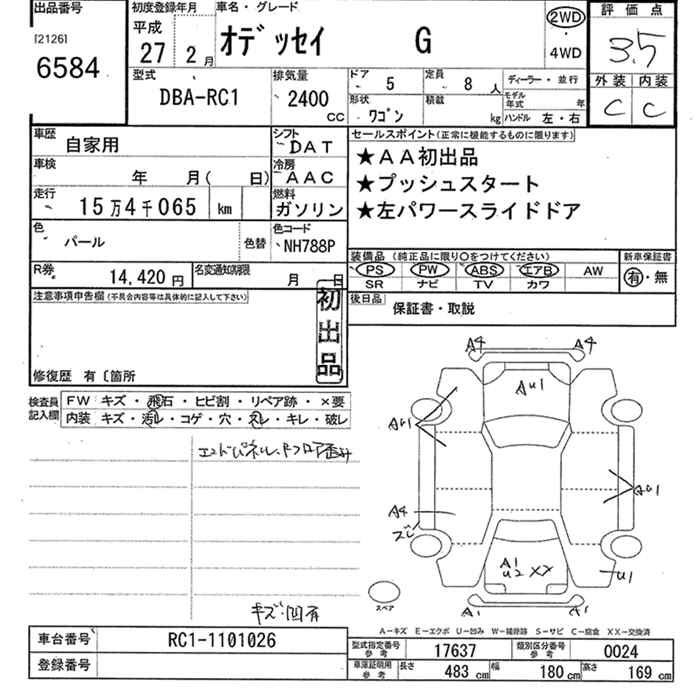 出品番号
[2126]
6584
初度登録年月
平成
27 2月
車名・グレード
オデッセイ G
2WD
・
4WD
評価点
3.5
外装 内装
C C
型式
DBA-RC1
排気量
2400
CC
ドア 5
定員 8人
形状 ワゴン
積載 kg
ディーラー・並行
モデル年式 年
ハンドル 左・右
車歴 自家用
シフト DAT
車検 年 月( 日)
冷房 AAC
走行 15万4千065 km
燃料 ガソリン
色 パール
色替
色コード NH788P
R券 14,420円
名変通知期限 月 日
セールスポイント(正常に機能するものに限ります)
★AA初出品
★プッシュスタート
★左パワースライドドア
装備品 (純正品に限り○をつけてください)
PS PW ABS エアB AW
SR ナビ TV カワ
新車保証書
有・無
後日品
保証書・取説
注意事項申告欄(不具合内容等は具体的に記入して下さい)
初出品
修復歴 有〔箇所
検査員記入欄
FW キズ・飛石・ヒビ割・リペア跡・×要
内装 キズ・汚レ・コゲ・穴・スレ・キレ・破レ
エンドパネル、Rフロア歪み
キズ・凹有
A4 A4
AU1
AU1
AU1
A4
ズレ
A1
U2 XX
U1
A1 A1
スペア
A-キズ E-エクボ U-凹み W-補修跡 S-サビ C-腐食 XX-交換済
車台番号 RC1-1101026
登録番号
型式指定番号参考 17637
類別区分番号参考 0024
車庫証明用参考
長さ 483cm
幅 180cm
高さ 169cm